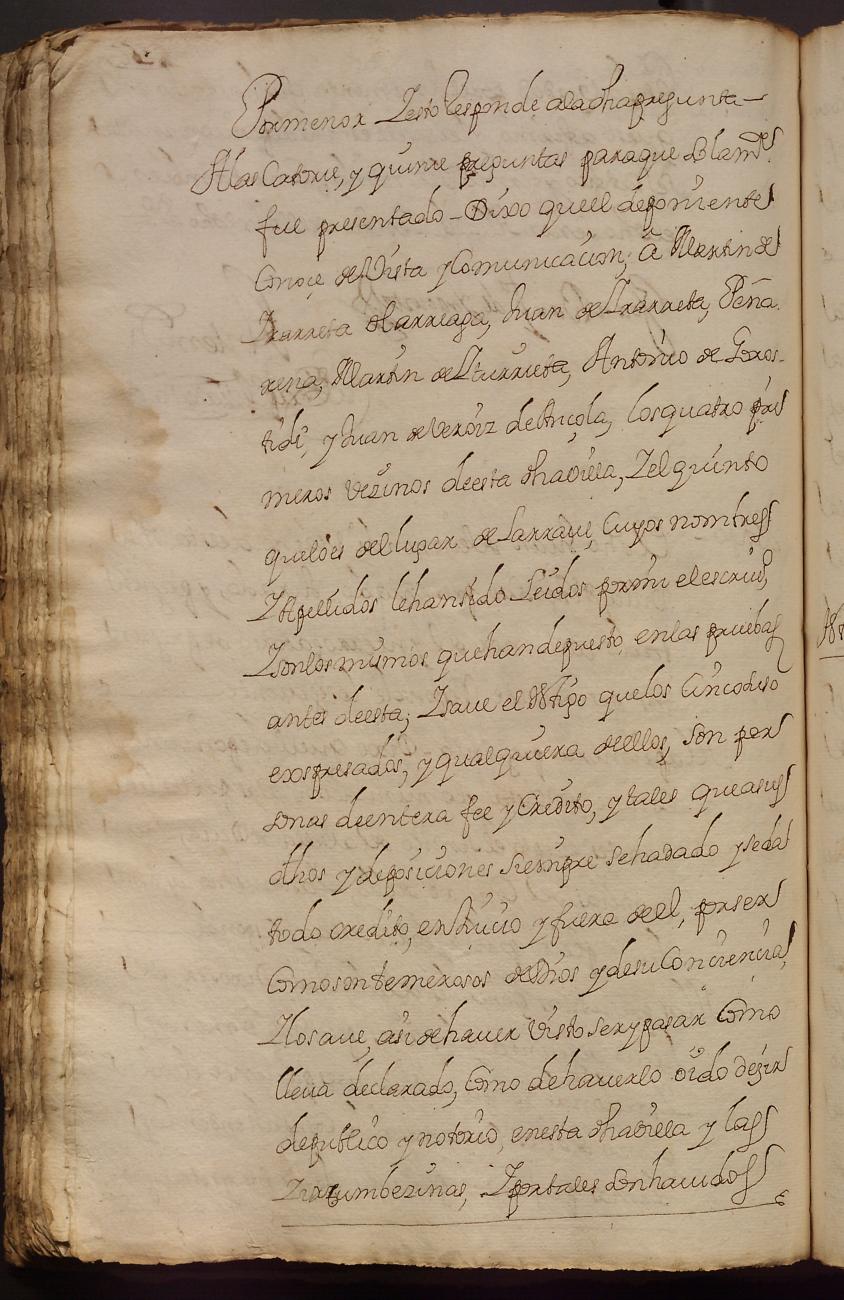 Pormenor Yesto Responde ala dha pregunta—
Alas Catorce, y quince preguntas paraque
fue presentado – Dixo que el deponiente
Conoçe de Vista y Comunicacion, a Martin de
Yrarreta Olarreaga, Juan de Yrarreta, Peña
rena, Martin de Yturrieta, Antonio de Goros-
tidi, y Juan de Veroiz de Ançola, los quatro pri
meros vezinos deesta dha Villa, Yel quinto
quelo es del lugar de Larraul, Cuyos nombres
YApellidos lehansido Leidos por mi el escriv.
Ysonlos mismos que han depuesto, enlas pruebas
antes deesta; Ysave el Testigo quelos Cinco dho
exospresados, y qualquiera deellos, son per
sonas deentera fee y Credito, y tales que asus
dhos y deposiciones siempre sehadado y seda
todo credito, en Juicio y fuera de el, por ser
Como son temerosos de Dios y desu Conciencia,
Ylosave, asi dehaver Visto ser y pasar Como
lleva declarado, Como dehaverlo oido dezir
depublico y notorio, enesta dha Villa y las
Zircumbezinas, Yportales son havidos